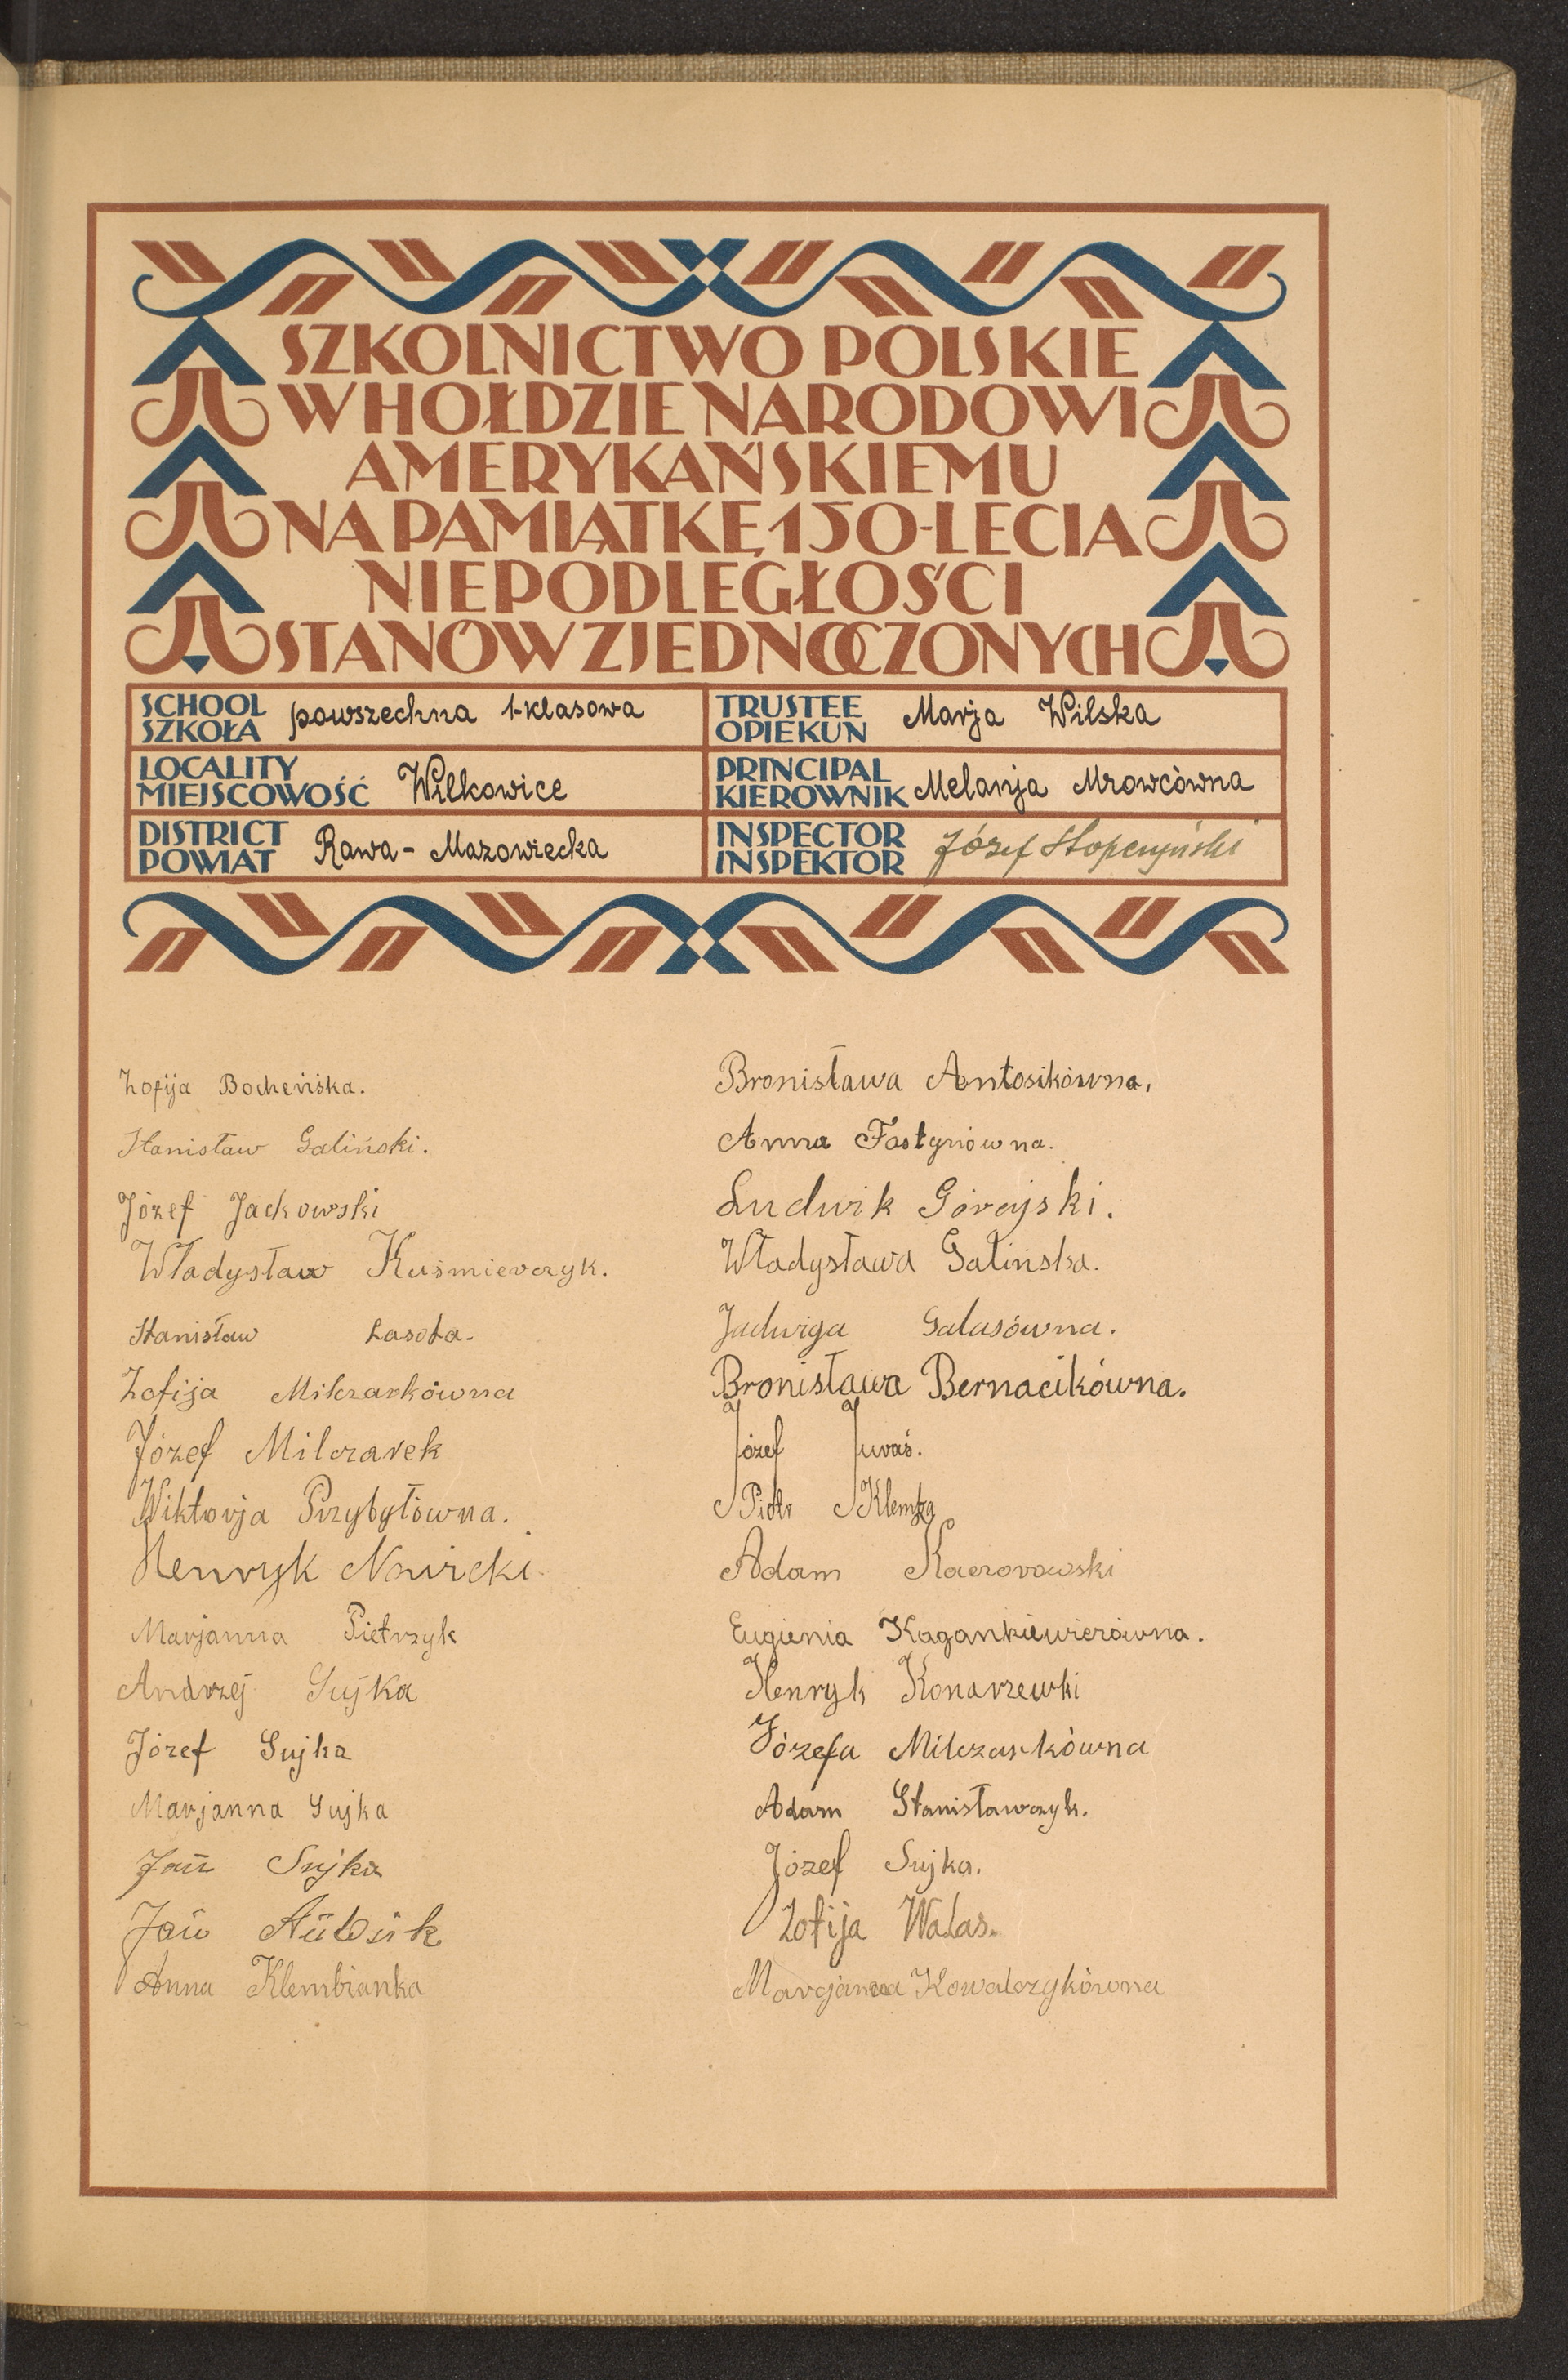 SZKOLNICTWO POLSKIE
W HOŁDZIE NARODOWI
AMERYKAŃSKIEMU
NA PAMIĄTKĘ 150-LECIA
NIEPODLEGŁOŚCI
STANÓW ZJEDNOCZONYCH
SCHOOL
SZKOŁA powszechna 1-klasowa
TRUSTEE
OPIEKUN Marja Wilska
LOCALITY
MIEJSCOWOŚĆ Wilkowice
PRINCIPAL
KIEROWNIK Melanja Mrowcówna
DISTRICT
POWIAT Rawa-Mazowiecka
INSPECTOR
INSPEKTOR Józef
Zofija Bocheńska.
Stanisław Galiński.
Józef Jackowski
Władysław Kuśmierczyk.
Stanisław Lasota.
Zofija Milczarkówna
Józef Milczarek
Wiktorja Przybyłówna.
Henryk Nowicki.
Marjanna Pietrzyk
Andrzej Sujka
Józef Sujka
Marjanna Sujka
Jan Sujka
Jan
Anna Klembianka
Bronisława Antosikówna.
Anna Fastynówna.
Ludwik Górajski.
Władysława Galińska.
Jadwiga Galasówna.
Bronisława Bernacikówna.
Józef Juraś.
Piotr Klemba
Adam Kaczorowski
Eugienia Kagankiewiczówna.
Henryk Konarzewki
Józefa Milczarkówna
Adam Stanisławczyk.
Józef Sujka.
Zofija Walas.
Marcjanna Kowalczykówna